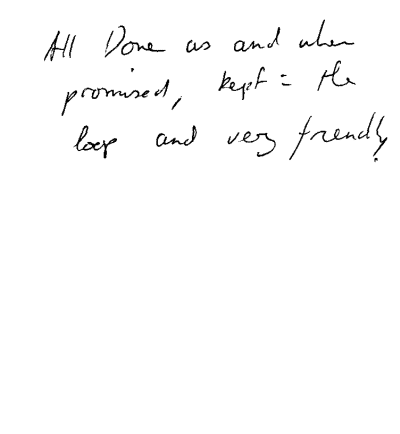 All Done as and when
promised, kept in the
loop and very friendly.